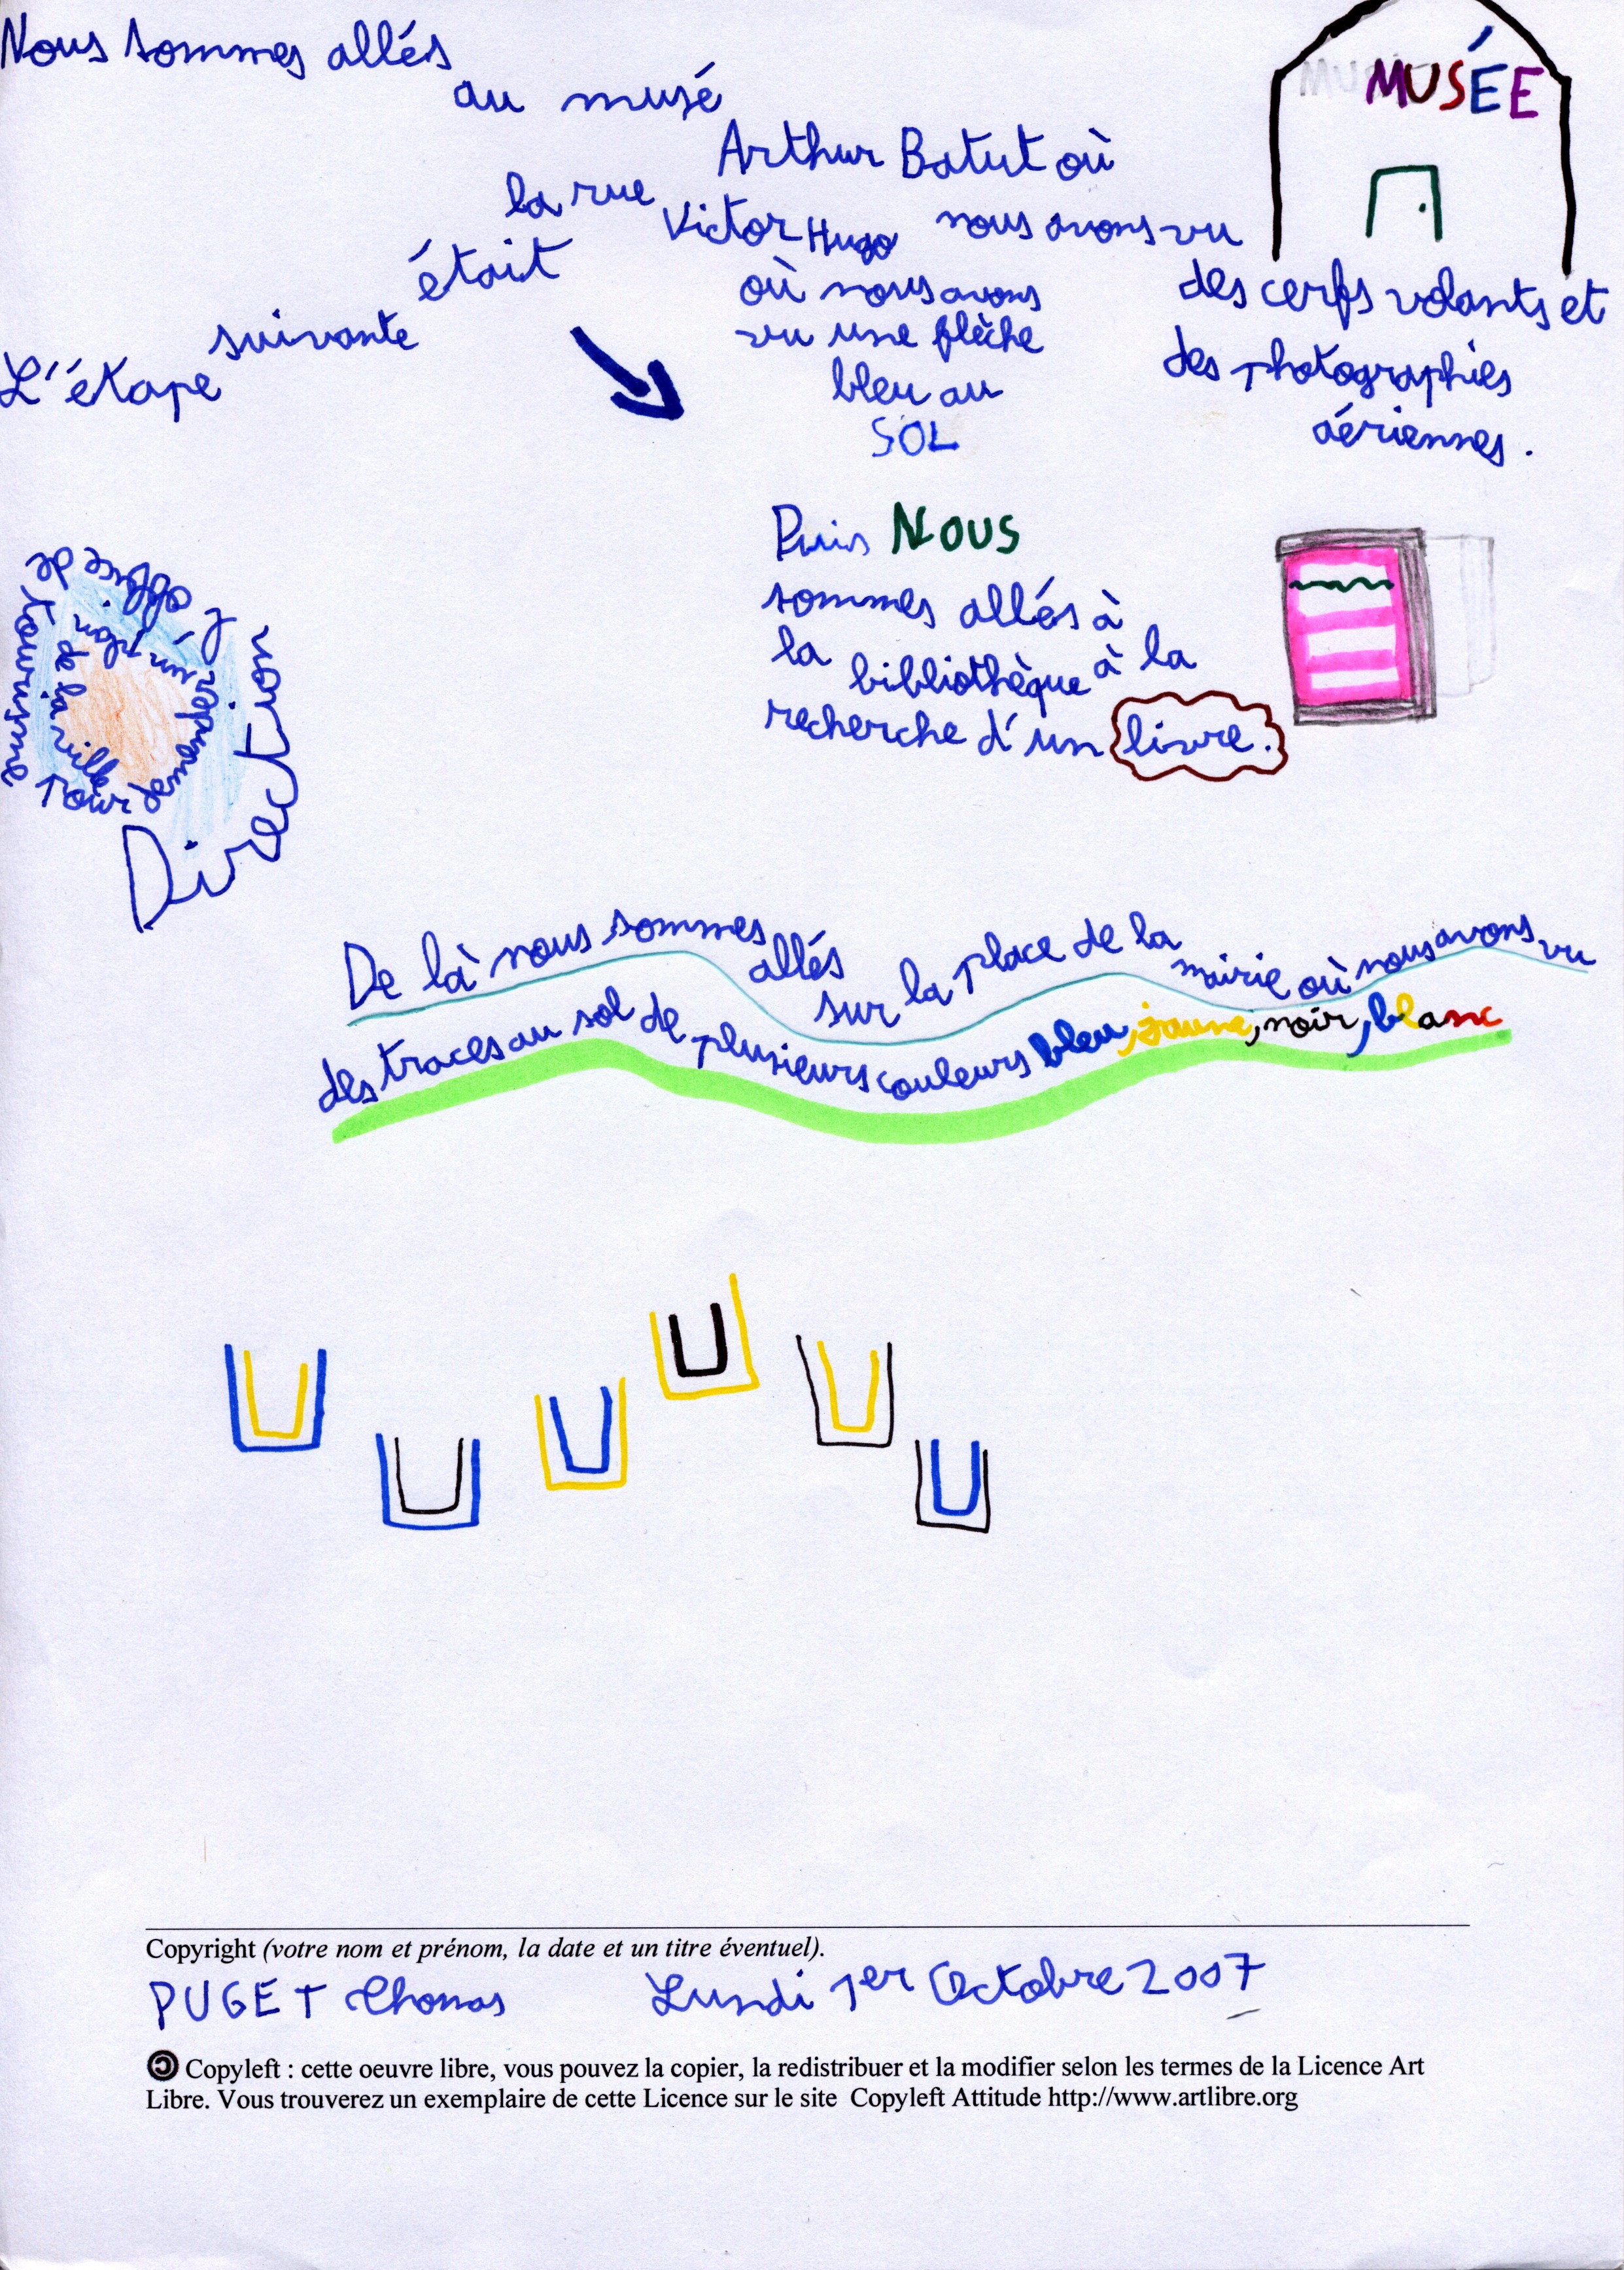 Nous sommes allés
au musé
Arthur Batut où
nous avons vu
des cerfs volants et
des photographies
aériennes.
MUSÉE
L'étape
suivante
était
la rue
Victor Hugo
où nous avons
vu une flèche
bleu au
SOL
Puis NOUS
sommes allés à
la bibliothèque à la
recherche d'un livre.
Direction
l'office de tourisme pour demander un plan de la ville
De là nous sommes allés sur la place de la mairie où nous avons vu
des traces au sol de plusieurs couleurs bleu, jaune, noir, blanc
Copyright (votre nom et prénom, la date et un titre éventuel).
PUGET Thomas Lundi 1er Octobre 2007
Copyleft : cette oeuvre libre, vous pouvez la copier, la redistribuer et la modifier selon les termes de la Licence Art
Libre. Vous trouverez un exemplaire de cette Licence sur le site Copyleft Attitude http://www.artlibre.org